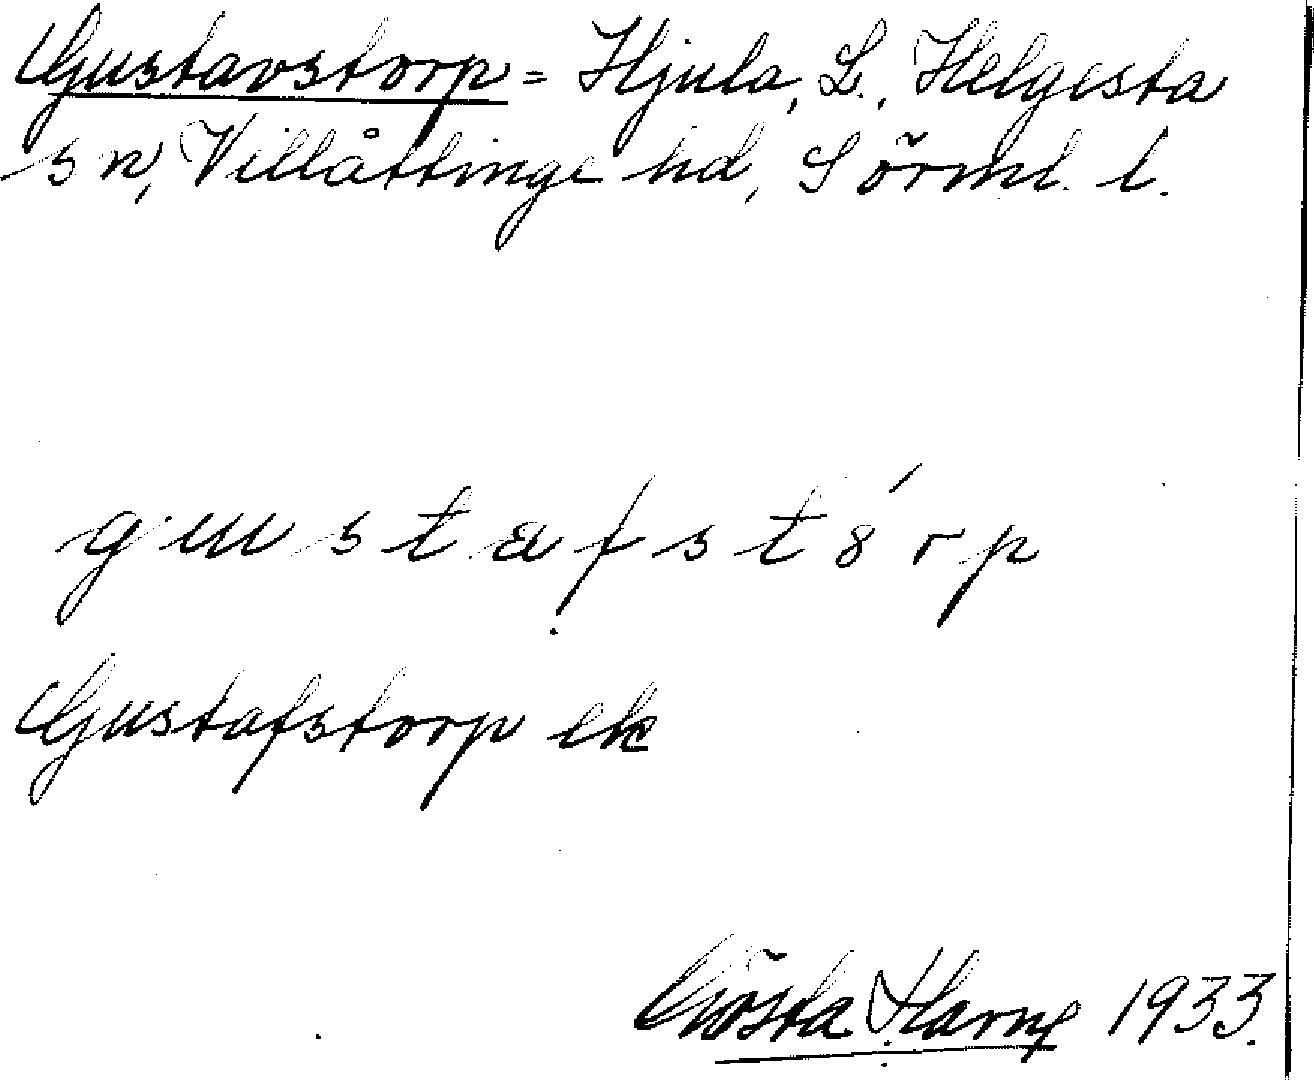 Gustavstorp = Hjula, L., Helgesta
sn, Villåttinge hd, Sörml. l.
gustafstó̤rp
Gustafstorp ek
Gösta Harne 1933.